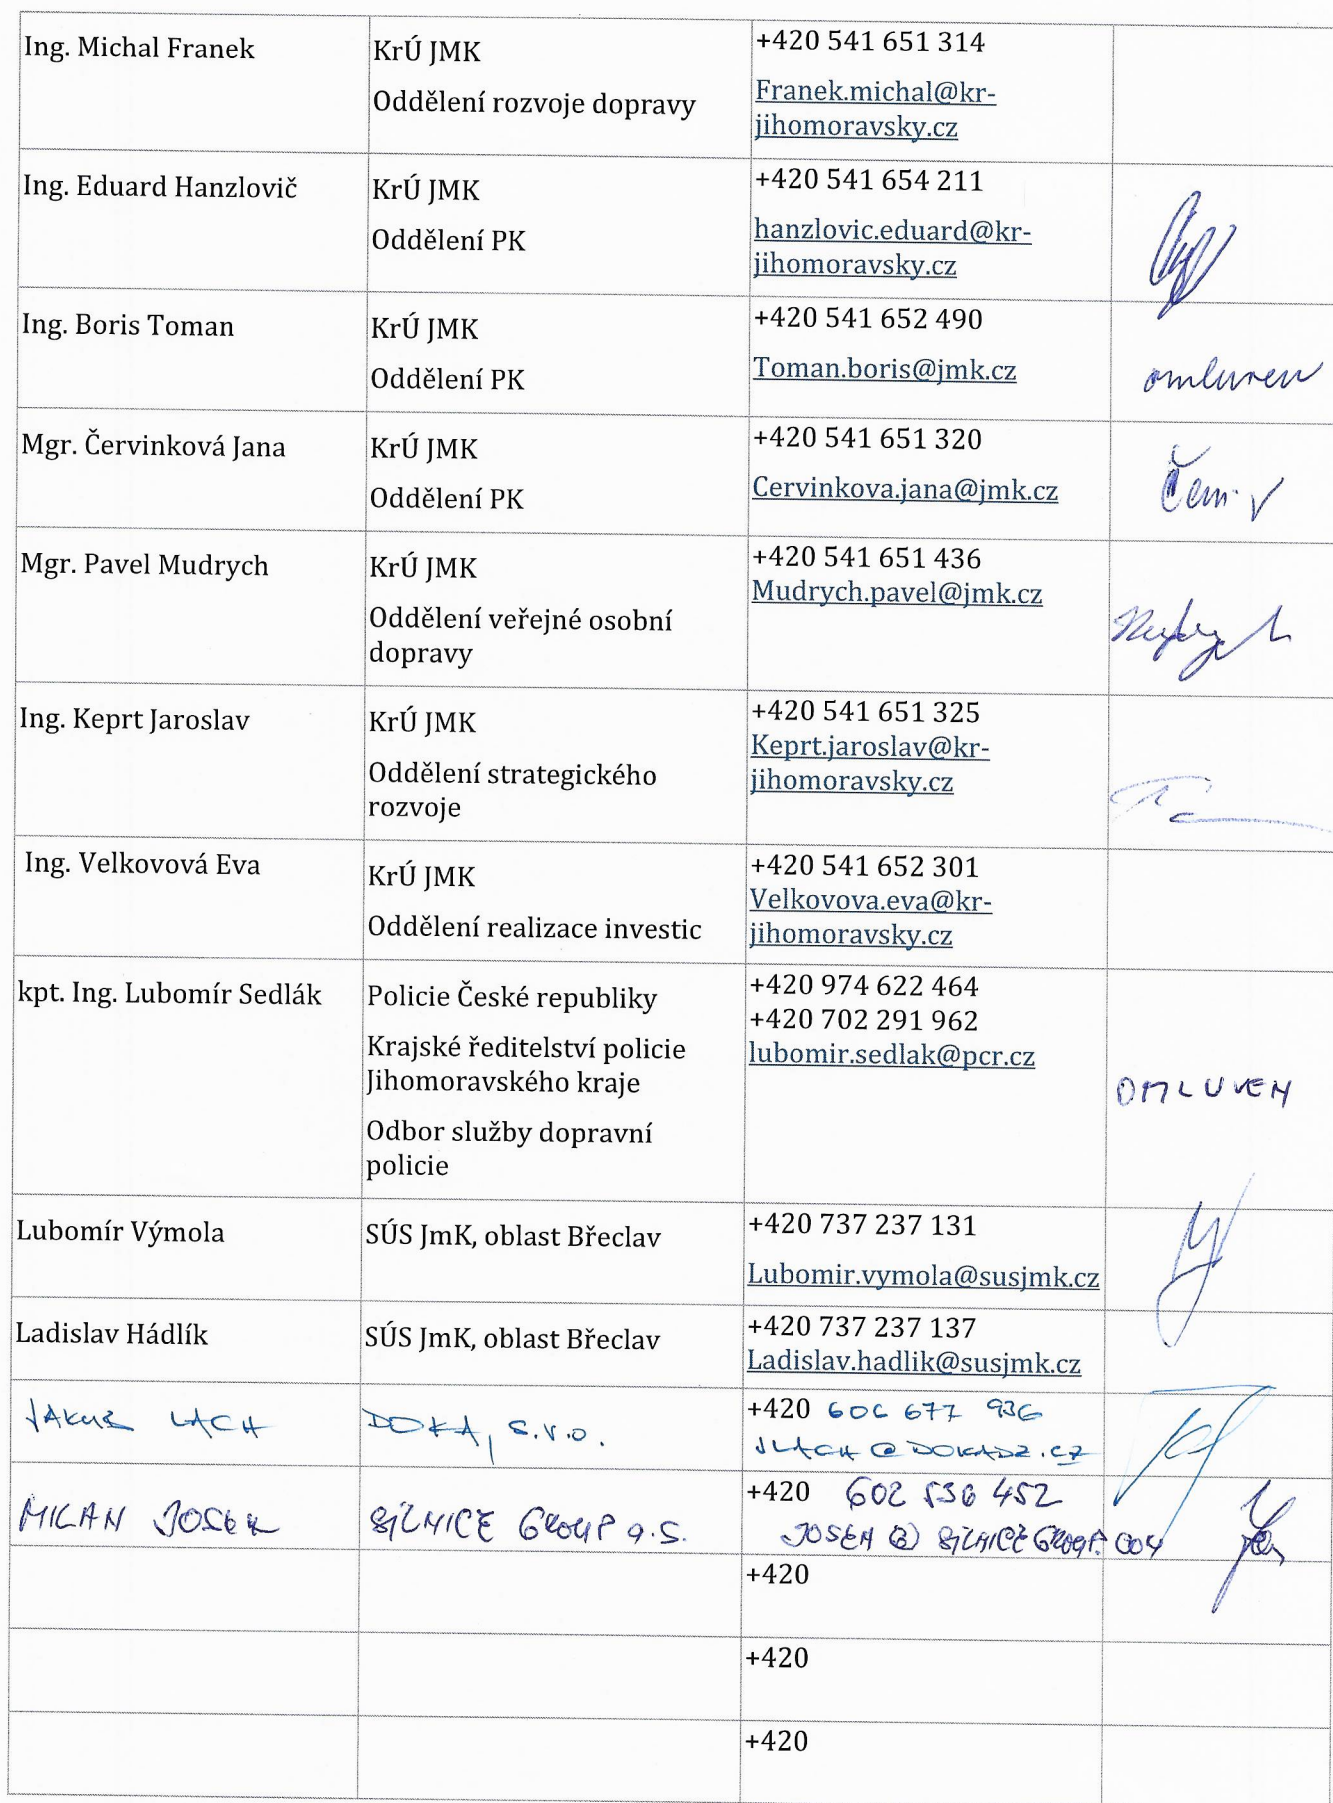 Ing. Michal Franek
KrÚ JMK
Oddělení rozvoje dopravy
+420 541 651 314
Franek.michal@kr-
jihomoravsky.cz
Ing. Eduard Hanzlovič
KrÚ JMK
Oddělení PK
+420 541 654 211
hanzlovic.eduard@kr-
jihomoravsky.cz
Ing. Boris Toman
KrÚ JMK
Oddělení PK
+420 541 652 490
Toman.boris@jmk.cz
omluven
Mgr. Červinková Jana
KrÚ JMK
Oddělení PK
+420 541 651 320
Cervinkova.jana@jmk.cz
Mgr. Pavel Mudrych
KrÚ JMK
Oddělení veřejné osobní
dopravy
+420 541 651 436
Mudrych.pavel@jmk.cz
Ing. Keprt Jaroslav
KrÚ JMK
Oddělení strategického
rozvoje
+420 541 651 325
Keprt.jaroslav@kr-
jihomoravsky.cz
Ing. Velkovová Eva
KrÚ JMK
Oddělení realizace investic
+420 541 652 301
Velkovova.eva@kr-
jihomoravsky.cz
kpt. Ing. Lubomír Sedlák
Policie České republiky
Krajské ředitelství policie
Jihomoravského kraje
Odbor služby dopravní
policie
+420 974 622 464
+420 702 291 962
lubomir.sedlak@pcr.cz
OMLUVEN
Lubomír Výmola
SÚS JmK, oblast Břeclav
+420 737 237 131
Lubomir.vymola@susjmk.cz
Ladislav Hádlík
SÚS JmK, oblast Břeclav
+420 737 237 137
Ladislav.hadlik@susjmk.cz
JAKUB LACH
+420 606 677 936
JLACH@DOKADZ.CZ
MILAN
SILNICE GROUP a.s.
+420 602 536 452
+420
+420
+420